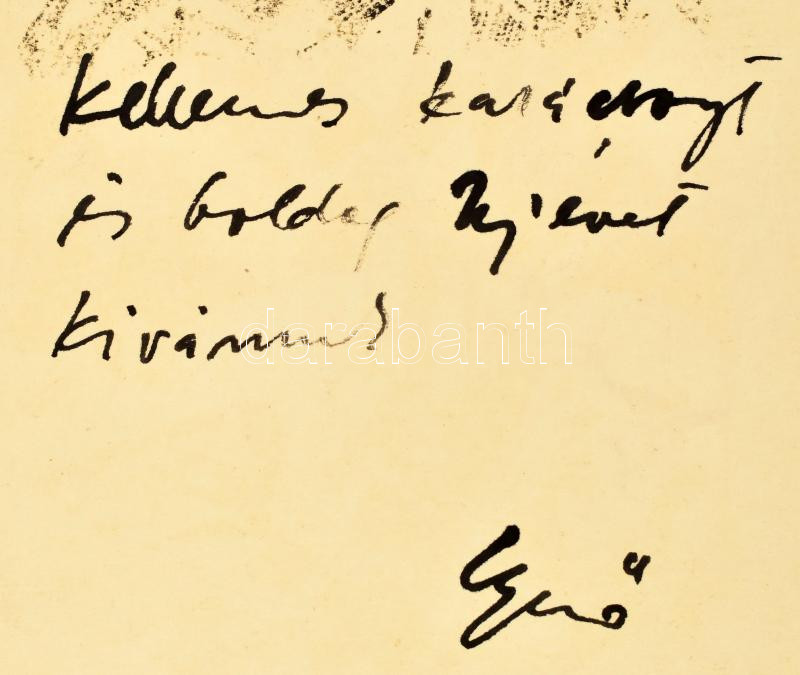 Kellemes karácsonyt
és boldog Új évet
kivánunk
darabanth